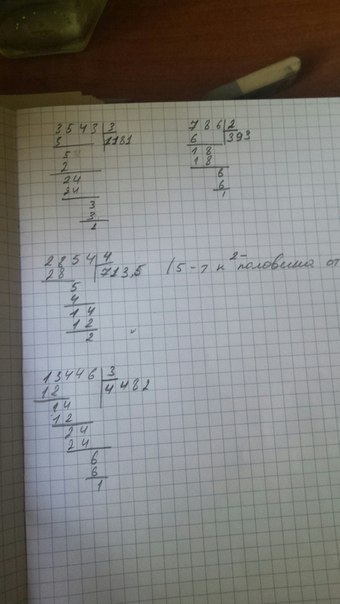 3543|3
3 |1181
5
2
24
24
3
3
1
786|2
6 |393
18
18
6
6
1
2854|4
28 |713,5 (5-т к 2- половина от
5
4
14
12
2
13446|3
12 |4482
14
12
24
24
6
6
1